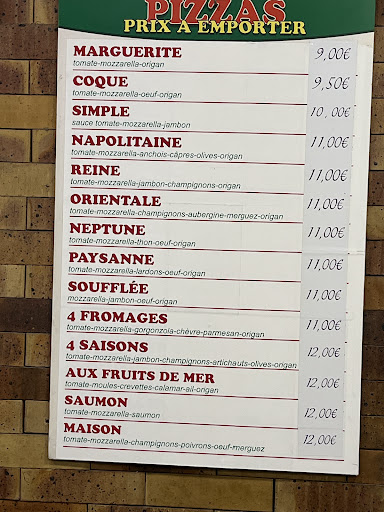 PIZZAS
PRIX A EMPORTER
MARGUERITE 9,00€
tomate-mozzarella-origan
COQUE 9,50€
tomate-mozzarella-oeuf-origan
SIMPLE 10,00€
sauce tomate-mozzarella-jambon
NAPOLITAINE 11,00€
tomate-mozzarella-anchois-câpres-olives-origan
REINE 11,00€
tomate-mozzarella-jambon-champignons-origan
ORIENTALE 11,00€
tomate-mozzarella-champignons-aubergine-merguez-origan
NEPTUNE 11,00€
tomate-mozzarella-thon-oeuf-origan
PAYSANNE 11,00€
tomate-mozzarella-lardons-oeuf-origan
SOUFFLÉE 11,00€
mozzarella-jambon-oeuf-origan
4 FROMAGES 11,00€
tomate-mozzarella-gorgonzola-chèvre-parmesan-origan
4 SAISONS 12,00€
tomate-mozzarella-jambon-champignons-artichauts-olives-origan
AUX FRUITS DE MER 12,00€
tomate-moules-crevettes-calamar-ail-origan
SAUMON 12,00€
tomate-mozzarella-saumon
MAISON 12,00€
tomate-mozzarella-champignons-poivrons-oeuf-merguez